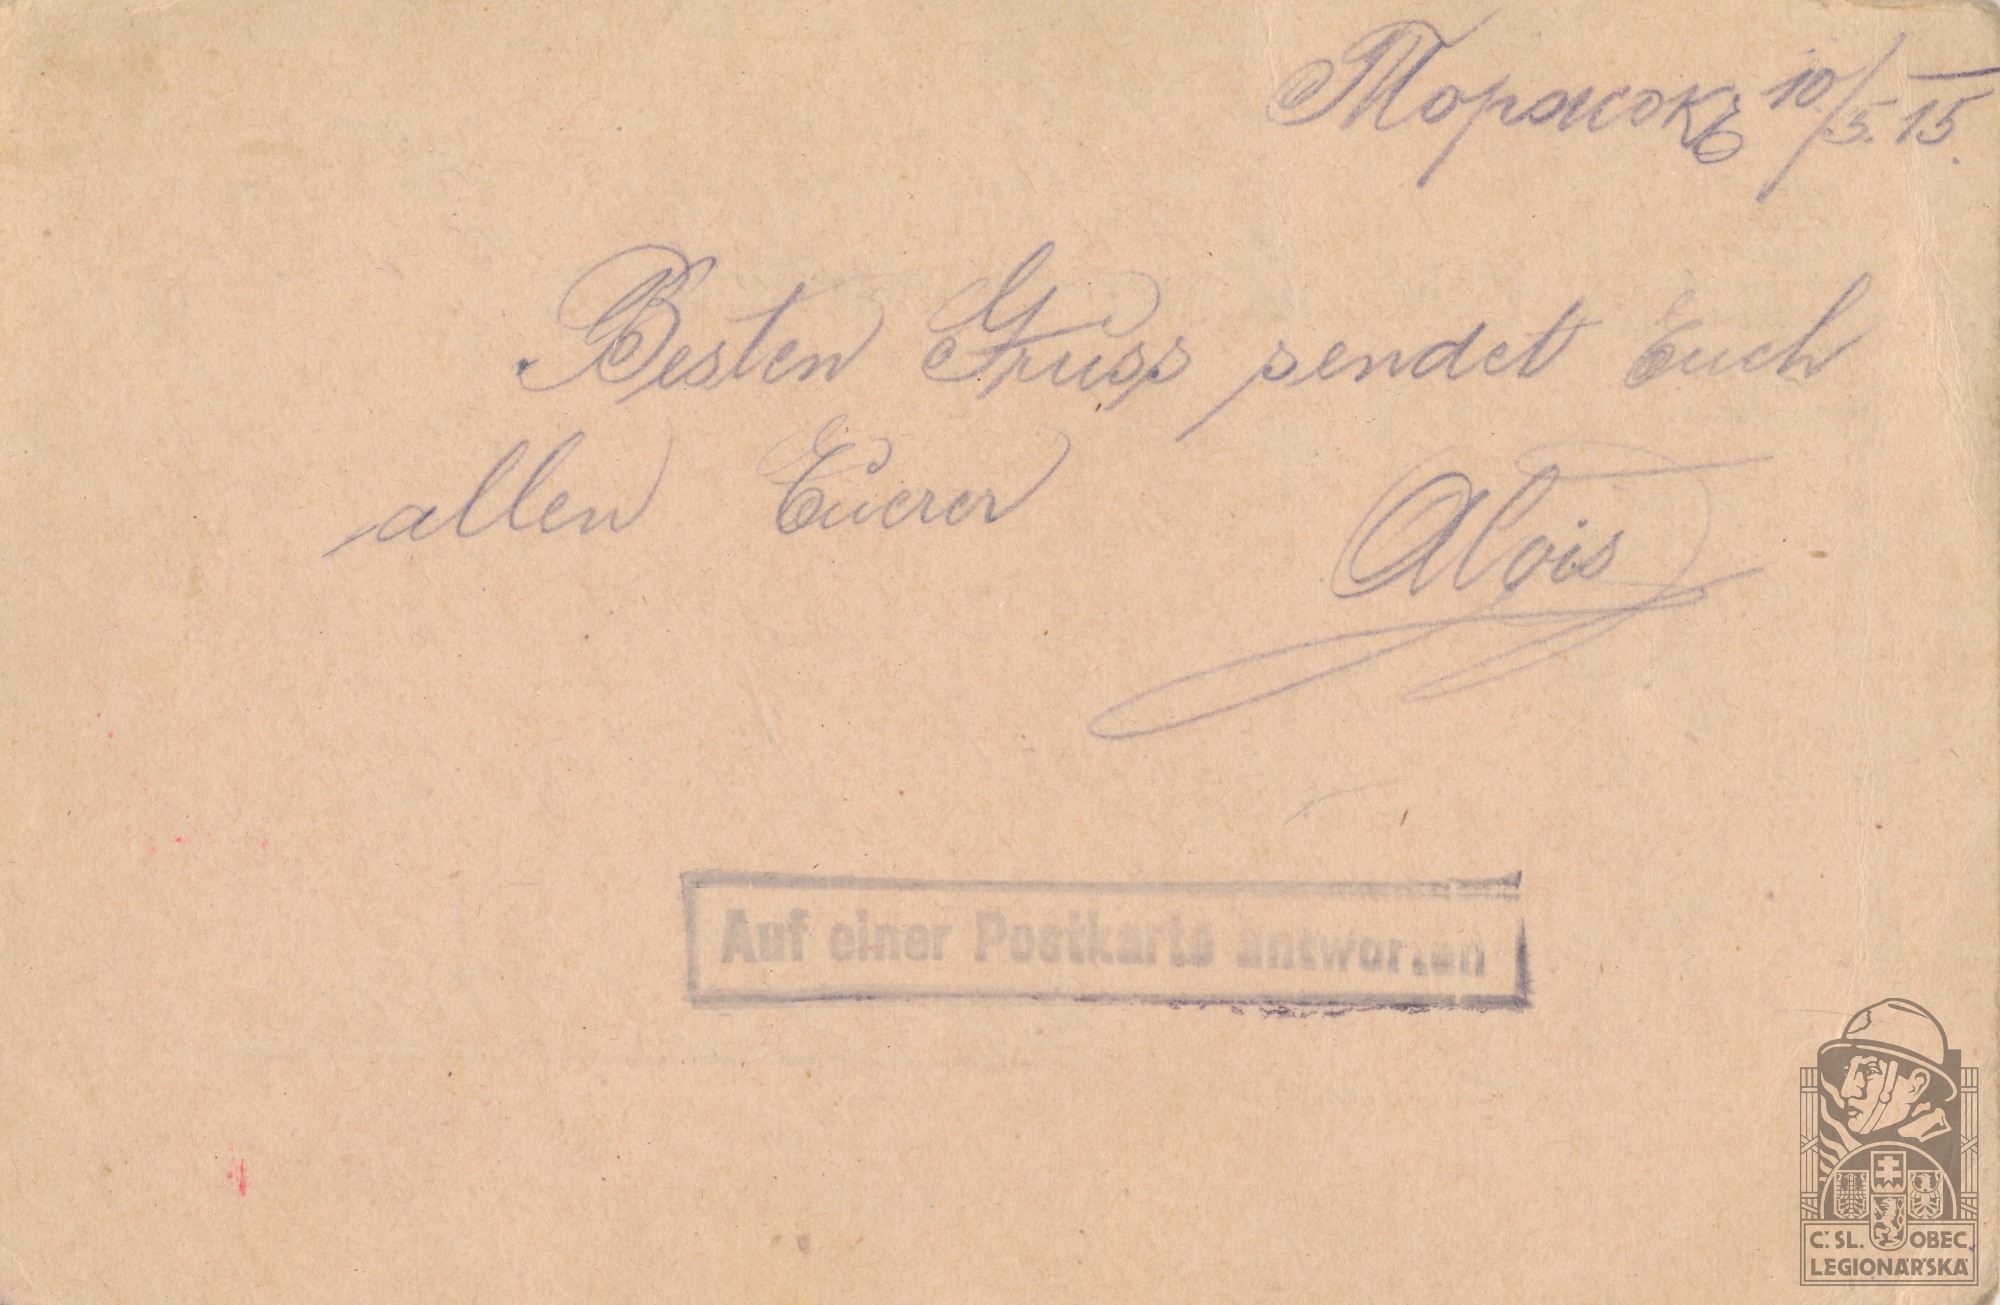 Торжокъ 10/5. 15.
Besten Gruss sendet Euch
allen Euerer Alois
Auf einer Postkarte antworten
Č. SL. OBEC
LEGIONÁŘSKÁ